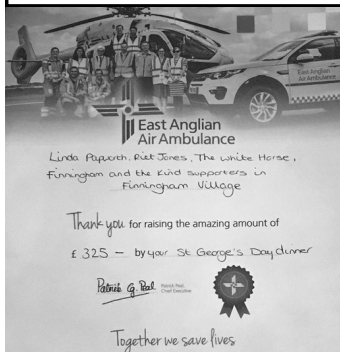 East Anglian
Air Ambulance
East Anglian
Air Ambulance
Linda Papworth, Riet Jones, The White Horse,
Finningham and the Kind supporters in
Finningham Village
Thank you for raising the amazing amount of
£ 325 — by your St George's Day dinner
Patrick Peel,
Chief Executive
Together we save lives